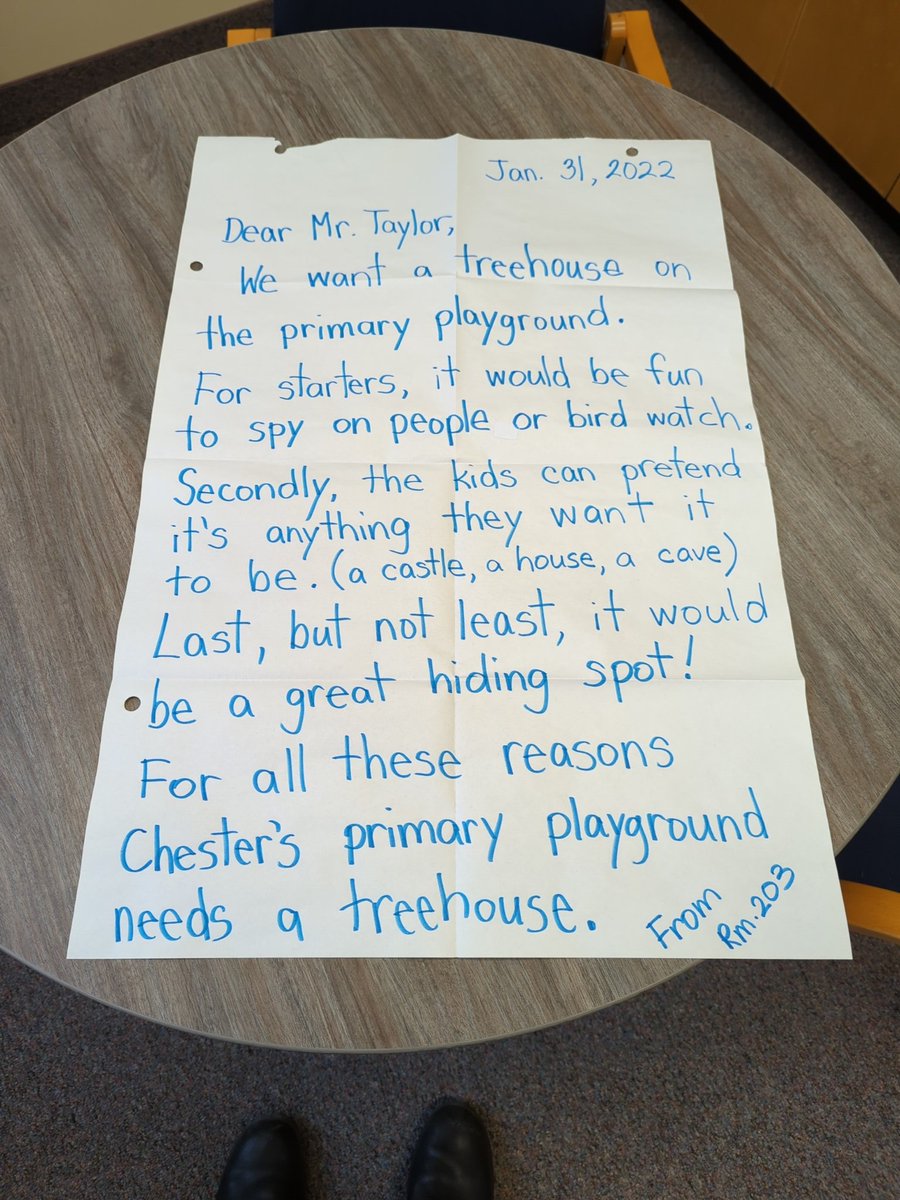 Jan. 31, 2022
Dear Mr. Taylor,
We want a treehouse on
the primary playground.
For starters, it would be fun
to spy on people or bird watch.
Secondly, the kids can pretend
it's anything they want it
to be. (a castle, a house, a cave)
Last, but not least, it would
be a great hiding spot!
For all these reasons
Chester's primary playground
needs a treehouse.
From
Rm. 203